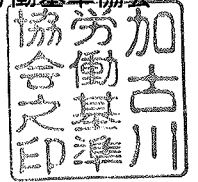 加古川
労働基準
協会之印